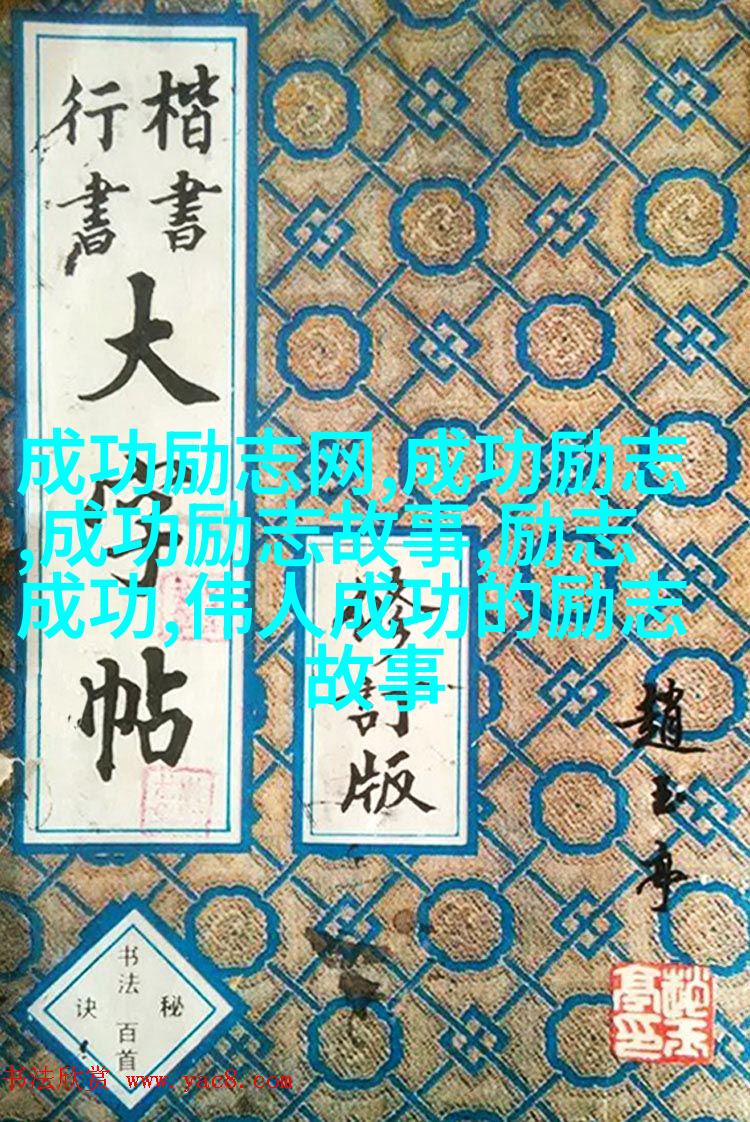 楷書
行書
大字帖
成功励志网,成功励志
,成功励志故事,励志
成功,伟人成功的励志
故事
修訂版
趙玉亭
书法百首
秘诀
书法欣赏 www.yac8.com